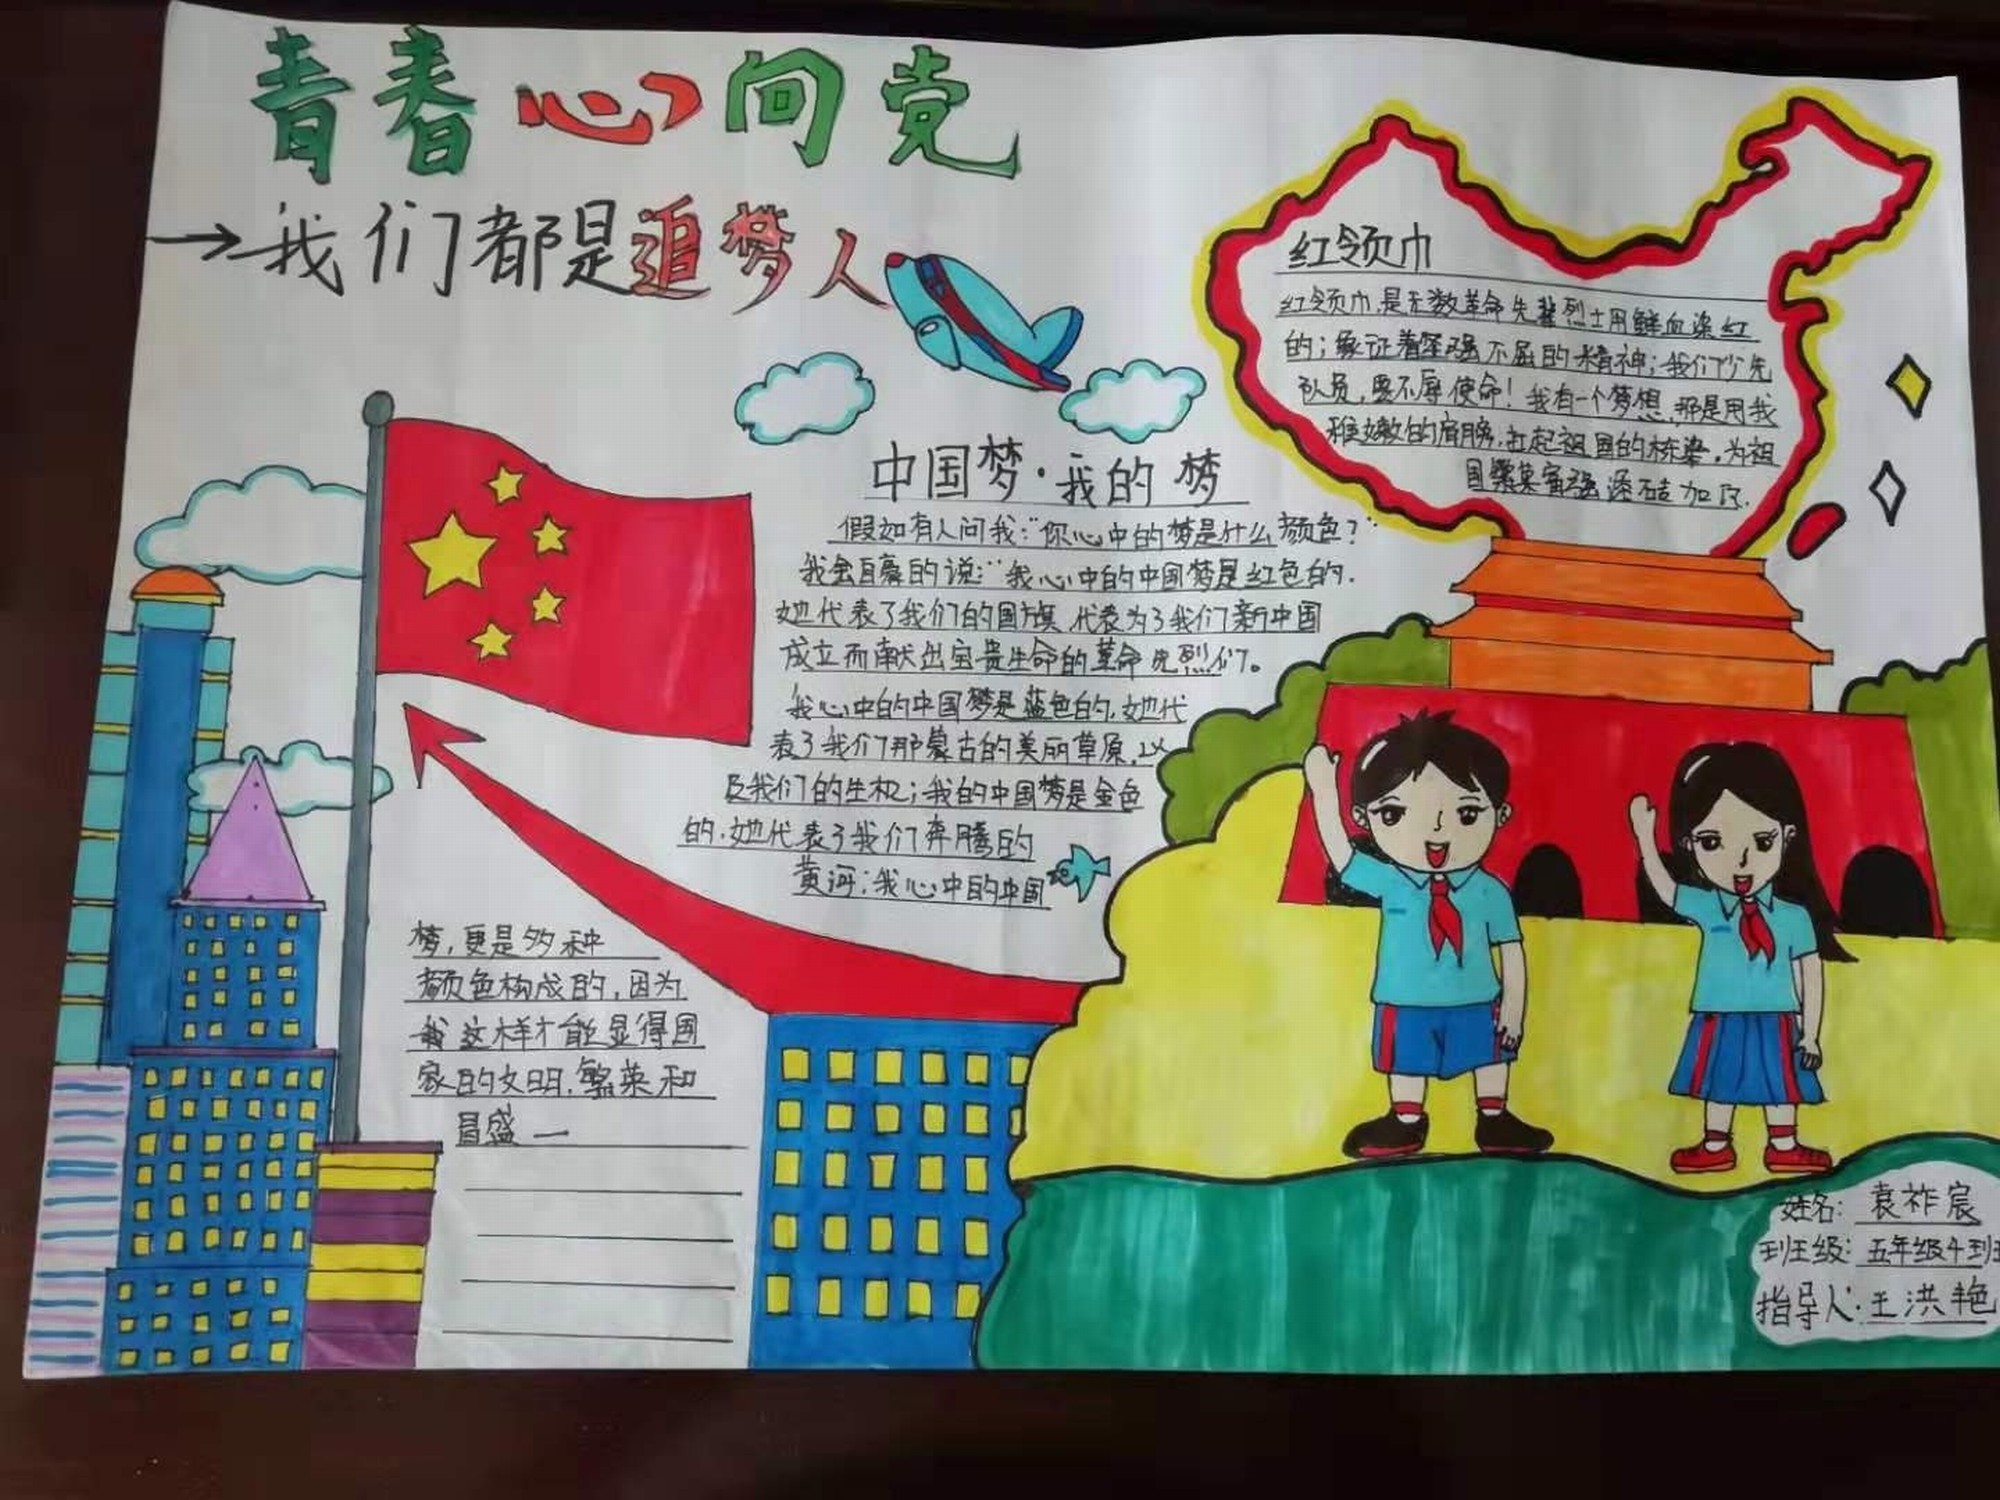 青春心向党
我们都是追梦人
红领巾
红领巾,是无数革命先辈烈士用鲜血染红
的;象征着坚强不屈的精神;我们少先
队员,要不辱使命!我有一个梦想,那是用我
稚嫩的肩膀,扛起祖国的栋梁,为祖
国繁荣富强添砖加瓦.
中国梦·我的梦
假如有人问我:"你心中的梦是什么颜色?"
我会自豪的说:"我心中的中国梦是红色的.
她代表了我们的国旗,代表为了我们新中国
成立而献出宝贵生命的革命先烈们。
我心中的中国梦是蓝色的,她代
表了我们那蒙古的美丽草原,以
及我们的生机;我的中国梦是金色
的,她代表了我们奔腾的
黄河;我心中的中国
梦,更是多种
颜色构成的,因为
我这样才能显得国
家的文明,繁荣和
昌盛一
姓名: 袁祚宸
班级: 五年级4班
指导人:王洪艳